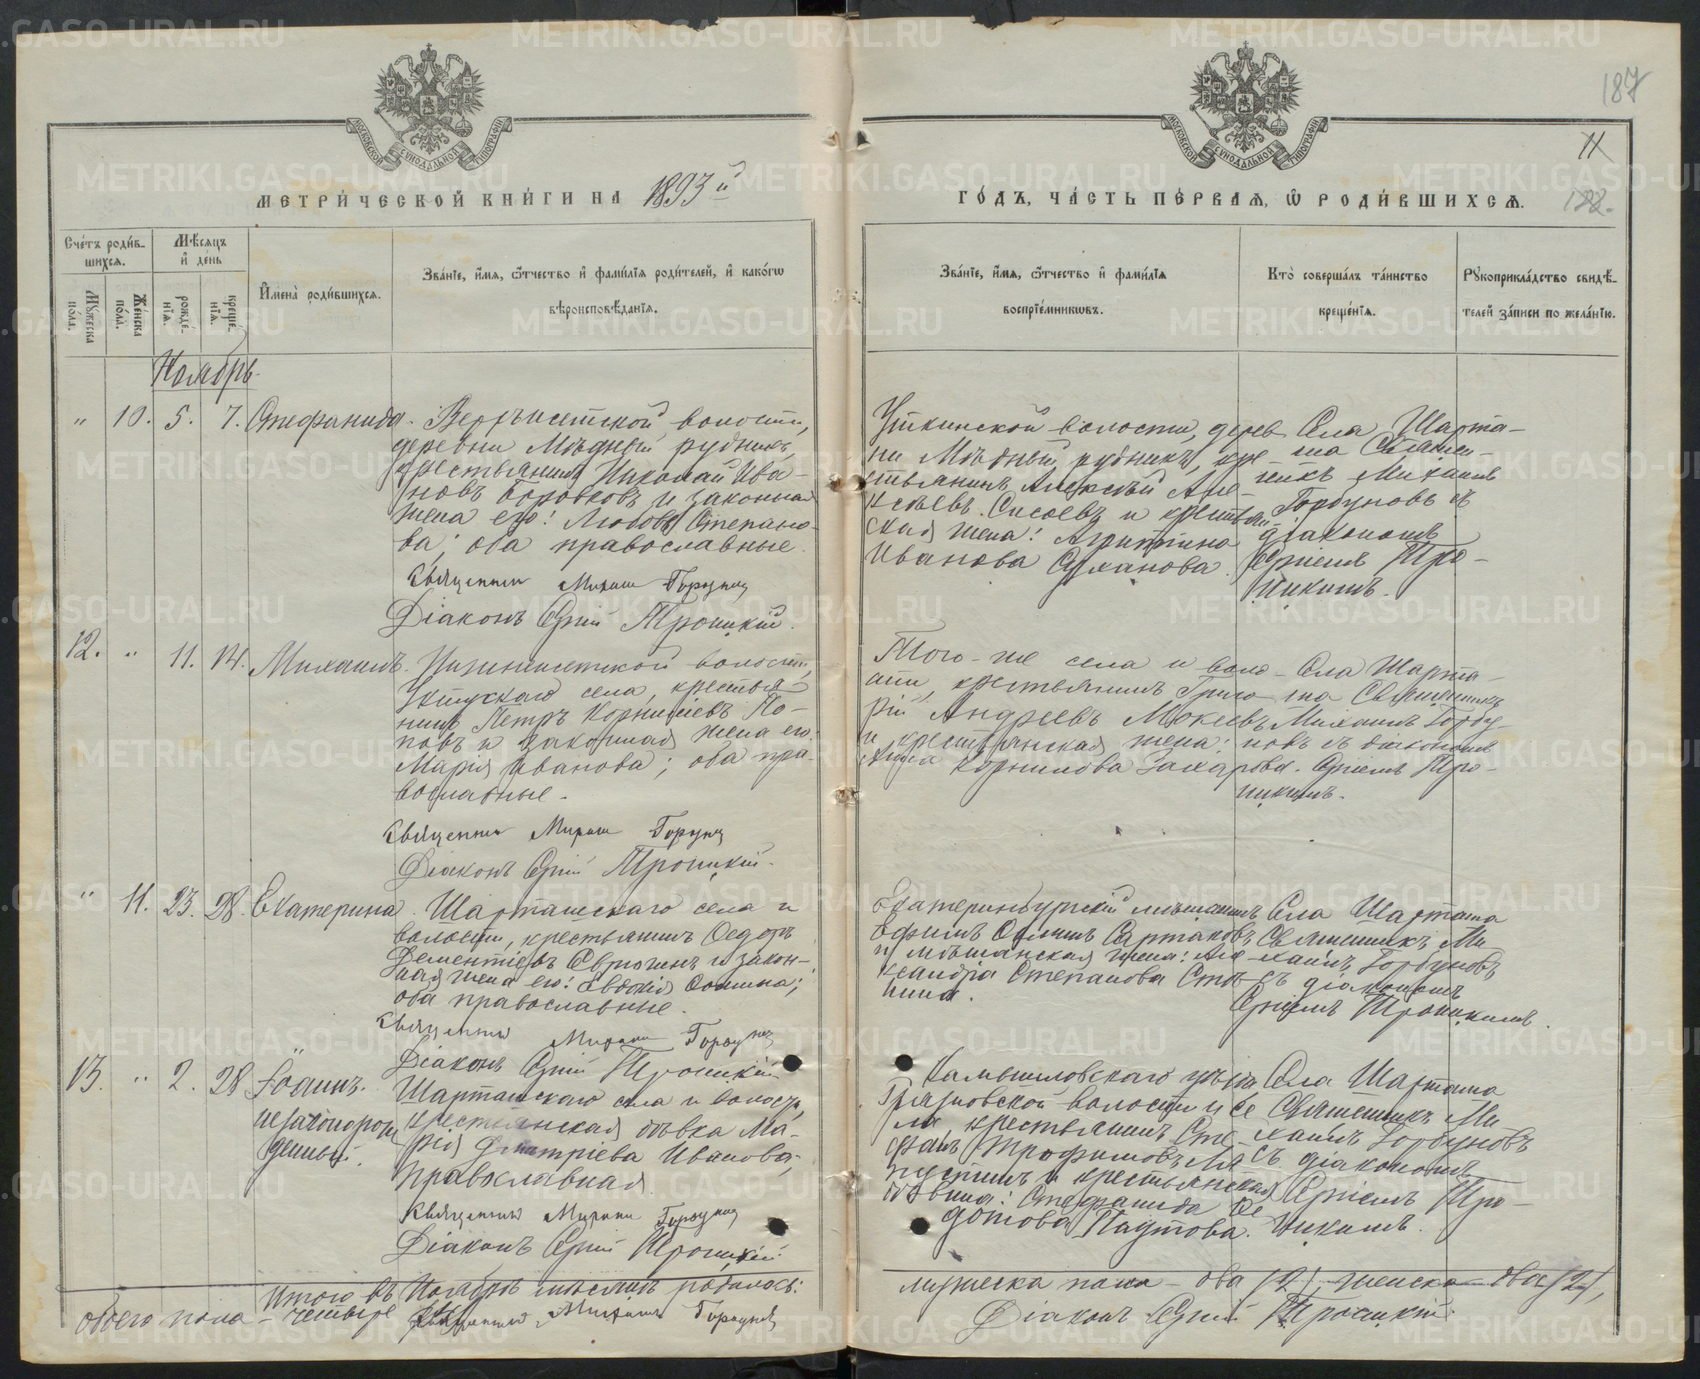 187
11
122.
МЕТРИ́ЧЕСКОЙ КНИ́ГИ НА 1893 й
ГО́ДЪ, ЧА́СТЬ ПЕ́РВАЯ, Ѡ РОДИ́ВШИХСЯ.
МОСКОВСКОЙ СѴНОДАЛЬНОЙ ТИПОГРАФІИ
МОСКОВСКОЙ СѴНОДАЛЬНОЙ ТИПОГРАФІИ
Сче́тъ роди́в-
шихся.
Мѣ́сяцъ
и҆ де́нь
Мꙋ́жеска
по́лꙋ.
Же́нска
по́лꙋ.
рожде́-
нїя.
креще́-
нїя.
И҆мена̀ роди́вшихся.
Зва́нїе, и҆́мя, ѻ҆́тчество и҆ фами́лїя роди́телей, и҆ како́гѡ
вѣроисповѣ́данїя.
Зва́нїе, и҆́мя, ѻ҆́тчество и҆ фами́лїя
воспрїе́мникѡвъ.
Кто̀ соверша́лъ та́инство
креще́нїя.
Рꙋкоприкла́дство свидѣ́-
телей за́писи по жела́нїю.
Ноябрь.
" 10. 5. 7. Стефанида. Верхъисетской волости,
деревни Мѣдный рудникъ,
крестьянинъ Николай Ива-
новъ Боровковъ и законная
жена его: Любовь Степано-
ва; оба православные.
Священникъ Михаилъ Горбуновъ
Діаконъ Сергій Троицкій.
Уткинской волости, дерев-
ни Мѣдный рудникъ, кре-
стьянинъ Алексѣй Але-
ксѣевъ Сысоевъ и крестьян-
ская жена: Агриппина
Иванова Суханова.
Села Шарта-
ша Священ-
никъ Михаилъ
Горбуновъ съ
діакономъ
Сергіемъ Тро-
ицкимъ.
12. " 11. 14. Михаилъ. Нижнеисетской волости,
Уктусскаго села, крестья-
нинъ Петръ Корниліевъ По-
повъ и законная жена его:
Марія Иванова; оба пра-
вославные.
Священникъ Михаилъ Горбуновъ
Діаконъ Сергій Троицкій.
Того-же села и воло-
сти, крестьянинъ Григо-
рій Андреевъ Мокеевъ
и крестьянская жена:
Анна Корнилова Захарова.
Села Шарта-
ша Священникъ
Михаилъ Горбу-
новъ съ діакономъ
Сергіемъ Тро-
ицкимъ.
" 11. 23. 28. Екатерина. Шарташскаго села и
волости, крестьянинъ Ѳедоръ
Дементіевъ Еврюгинъ и закон-
ная жена его: Евдокія Ѳомина;
оба православные.
Священникъ Михаилъ Горбуновъ
Діаконъ Сергій Троицкій
Екатеринбургскій мѣщанинъ
Ефимъ Ѳоминъ Сартаковъ
и мѣщанская жена: Але-
ксандра Степанова
Села Шарташа
Священникъ Ми-
хаилъ Горбуновъ
съ діакономъ
Сергіемъ Троицкимъ.
13. " 2. 28 Іоаннъ.
незаконорож
денный.
Шарташскаго села и волости,
крестьянская дѣвка Ма-
рія Димитріева Иванова;
православная.
Священникъ Михаилъ Горбуновъ
Діаконъ Сергій Троицкій
Камышловскаго уѣзда
Грязновской волости и се
ла, крестьянинъ Сте-
фанъ Трофимовъ
и крестьянская
дѣвица: Стефанида Ѳе
дотова Паутова.
Села Шарташа
Священникъ Ми-
хаилъ Горбуновъ
съ діакономъ
Сергіемъ Тро-
ицкимъ.
Итого въ Ноябрѣ мѣсяцѣ родилось:
мужеска пола - два (2), женска - два (2),
обоего пола - четыре Священникъ Михаилъ Горбуновъ
Діаконъ Сергій Троицкій
METRIKI.GASO-URAL.RU